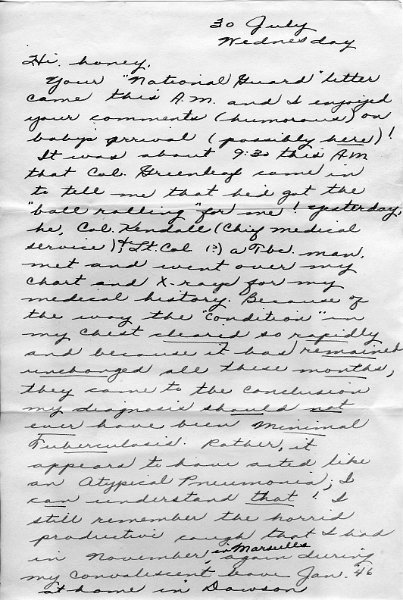 30 July
Wednesday
Hi. honey.
Your "National Guard" letter
came this A.M. and I enjoyed
your comments (humorous) on
baby's arrival (possibly here)!
It was about 9:30 this AM
that Col. Greenleaf came in
to tell me that he'd got the
"ball rolling" for me! Yesterday,
he, Col. Kendall (Chief medical
service) & Lt. Col (?) a Tbc. man.
met and went over my
chart and X-rays for my
medical history. Because of
the way the "condition" in
my chest cleared so rapidly
and because it has remained
unchanged all these months,
they came to the conclusion
my diagnosis should not
ever have been Minimal
Tuberculosis. Rather, it
appears to have acted like
an Atypical Pneumonia; I
can understand that! I
still remember the horrid
productive cough that I had
in November in Marseille, again during
my convalescent leave Jan. 46
at home in Dawson